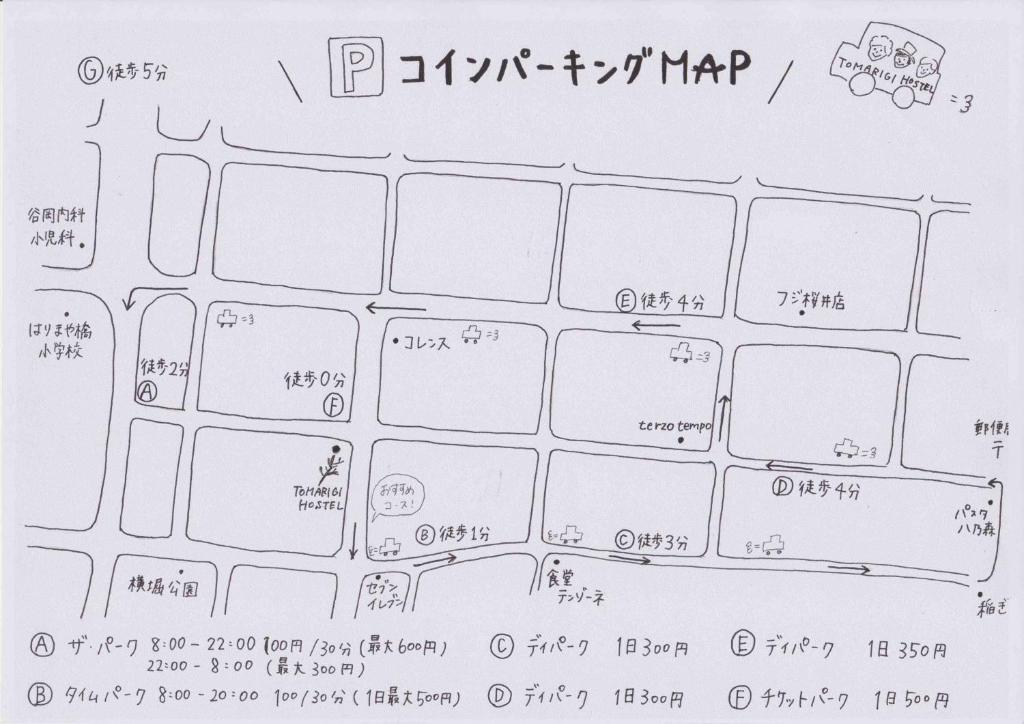 Ⓖ徒歩5分
P コインパーキングMAP
TOMARIGI HOSTEL
谷岡内科
小児科
はりまや橋
小学校
Ⓔ徒歩4分
フジ桜井店
コレンス
徒歩2分
Ⓐ
徒歩0分
Ⓕ
terzo tempo
郵便局
〒
TOMARIGI
HOSTEL
おすすめ
コース!
Ⓑ徒歩1分
Ⓒ徒歩3分
Ⓓ徒歩4分
パスタ
八乃森
横堀公園
セブン
イレブン
食堂
テンゾーネ
稲ぎ
Ⓐ ザ・パーク 8:00-22:00 100円/30分(最大600円)
22:00-8:00 (最大300円)
Ⓑ タイムパーク 8:00-20:00 100/30分(1日最大500円)
Ⓒ ディパーク 1日300円
Ⓓ ディパーク 1日300円
Ⓔ ディパーク 1日350円
Ⓕ チケットパーク 1日500円